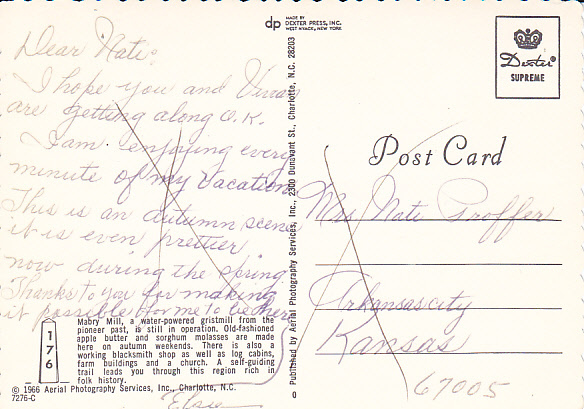 Dear Nate:
I hope you and
are getting along O.K.
I am enjoying every
minute of my vacation
This is an autumn scene
it is even prettier
now during the spring
Thanks to you for making
it possible for me to be here
Elsie
176
Mabry Mill, a water-powered gristmill from the
pioneer past, is still in operation. Old-fashioned
apple butter and sorghum molasses are made
here on autumn weekends. There is also a
working blacksmith shop as well as log cabins,
farm buildings and a church. A self-guiding
trail leads you through this region rich in
folk history.
© 1966 Aerial Photography Services, Inc., Charlotte, N.C.
7276-C
dp
MADE BY
DEXTER PRESS, INC.
WEST NYACK, NEW YORK
Published by Aerial Photography Services, Inc., 2300 Dunavant St., Charlotte, N.C. 28203
Dexter®
SUPREME
Post Card
Mrs Nate Proffer
Arkansas city
Kansas
67005